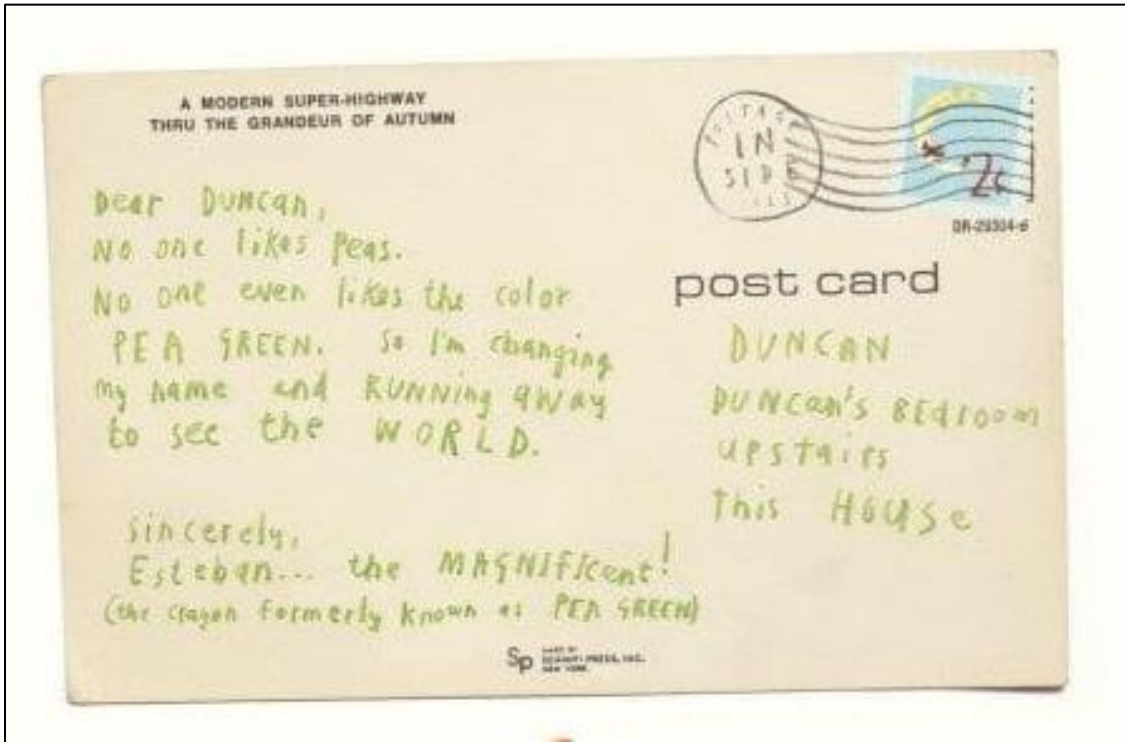 A MODERN SUPER-HIGHWAY
THRU THE GRANDEUR OF AUTUMN
Dear DUNCAN,
No one likes Peas.
No one even likes the color
PEA GREEN. So I'm changing
my name and RUNNing away
to see the WORLD.
Sincerely,
Esteban... the MAGNIFIcent!
(the crayon formerly known as PEA GREEN)
POSTAGE
IN
SIDE
2c
DR-29304-6
post card
DUNCAN
DUNCan's BEdroom
upstairs
this HOUSe
Sp
PRESS, INC.
NEW YORK